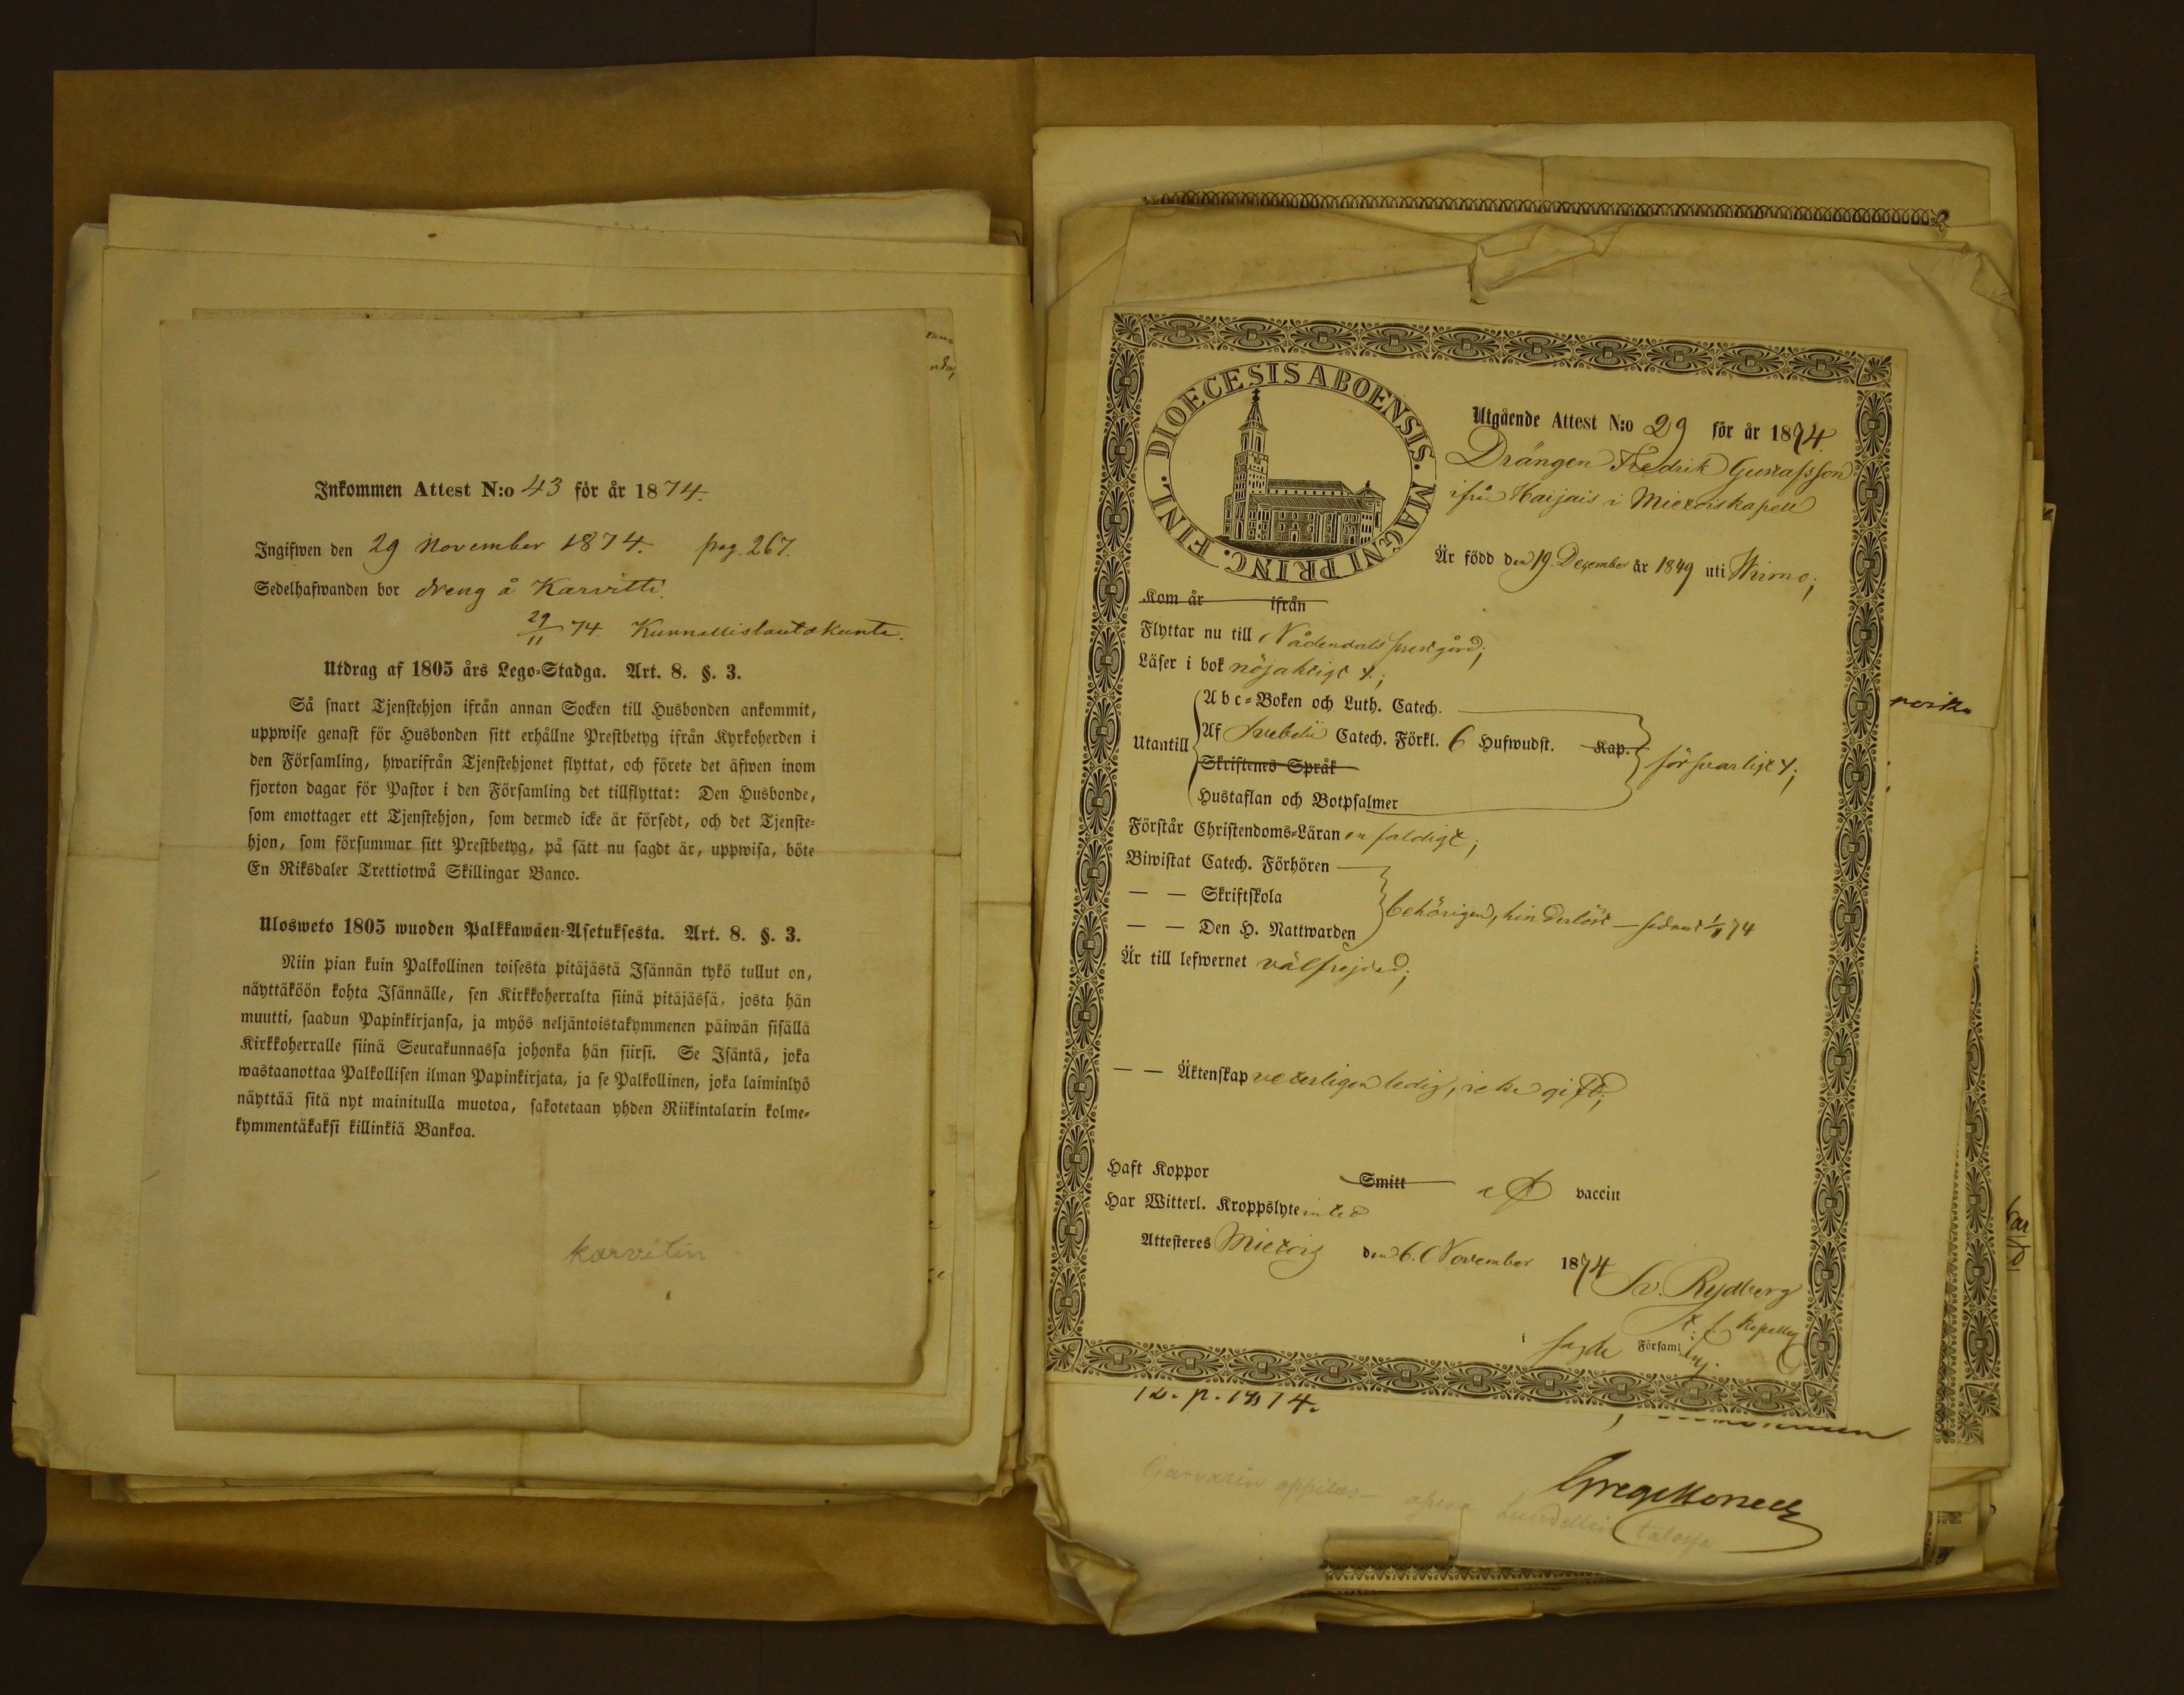 Inkommen Attest N:o 43 för år 1874.
Ingifwen den 29 November 1874. pag. 267.
Sedelhafwanden bor dreng å Karvitti.
29/11 74. Kunnallislautakunta.
Utdrag af 1805 års Lego-Stadga. Art. 8. §. 3.
Så snart Tjenstehjon ifrån annan Socken till Husbonden ankommit,
uppwise genast för Husbonden sitt erhållne Prestbetyg ifrån Kyrkoherden i
den Församling, hwarifrån Tjenstehjonet flyttat, och förete det äfwen inom
fjorton dagar för Pastor i den Församling det tillflyttat: Den Husbonde,
som emottager ett Tjenstehjon, som dermed icke är försedt, och det Tjenste-
hjon, som försummar sitt Prestbetyg, på sätt nu sagdt är, uppwisa, böte
En Riksdaler Trettiotwå Skillingar Banco.
Ulosweto 1805 wuoden Palkkawäen-Asetuksesta. Art. 8. §. 3.
Niin pian kuin Palkollinen toisesta pitäjästä Isännän tykö tullut on,
näyttäköön kohta Isännälle, sen Kirkkoherralta siinä pitäjässä, josta hän
muutti, saadun Papinkirjansa, ja myös neljäntoistakymmenen päiwän sisällä
Kirkkoherralle siinä Seurakunnassa johonka hän siirsi. Se Isäntä, joka
wastaanottaa Palkollisen ilman Papinkirjata, ja se Palkollinen, joka laiminlyö
näyttää sitä nyt mainitulla muotoa, sakotetaan yhden Riikintalarin kolme-
kymmentäkaksi killinkiä Bankoa.
karvitin
DIOECESIS ABOENSIS. MAGNI PRINC. FINL.
Utgående Attest N:o 29 för år 1874.
Drängen Fredrik Gustafsson
ifrån Haijais i Mietois kapell
Är född den 19. December år 1849 uti Wirmo;
Kom år ifrån
Flyttar nu till Nådendals prestgård;
Läser i bok nöjaktigt
Abc-Boken och Luth. Catech.
Utantill Af Svebelii Catech. Förkl. 6 Hufwudst. Kap. försvarligt
Skriftenes Språk
Hustaflan och Botpsalmer
Förstår Christendoms-Läran enfaldigt;
Biwistat Catech. Förhören
— — Skriftskola
— — Den H. Nattwarden behörigen, hinderlöst — sednast 1/11 74
Är till lefwernet välfrejdad;
— — Äktenskap veterligen ledig, icke gift;
Haft Koppor Smitt af vaccin
Har Witterl. Kroppslyte intet
Attesteres Mietois den 6. November 1874
Sv. Rydberg
t. f. Kapellan
i sagde Församling.
Greg. Moneell
Garvarin oppilas — Lundellin talossa